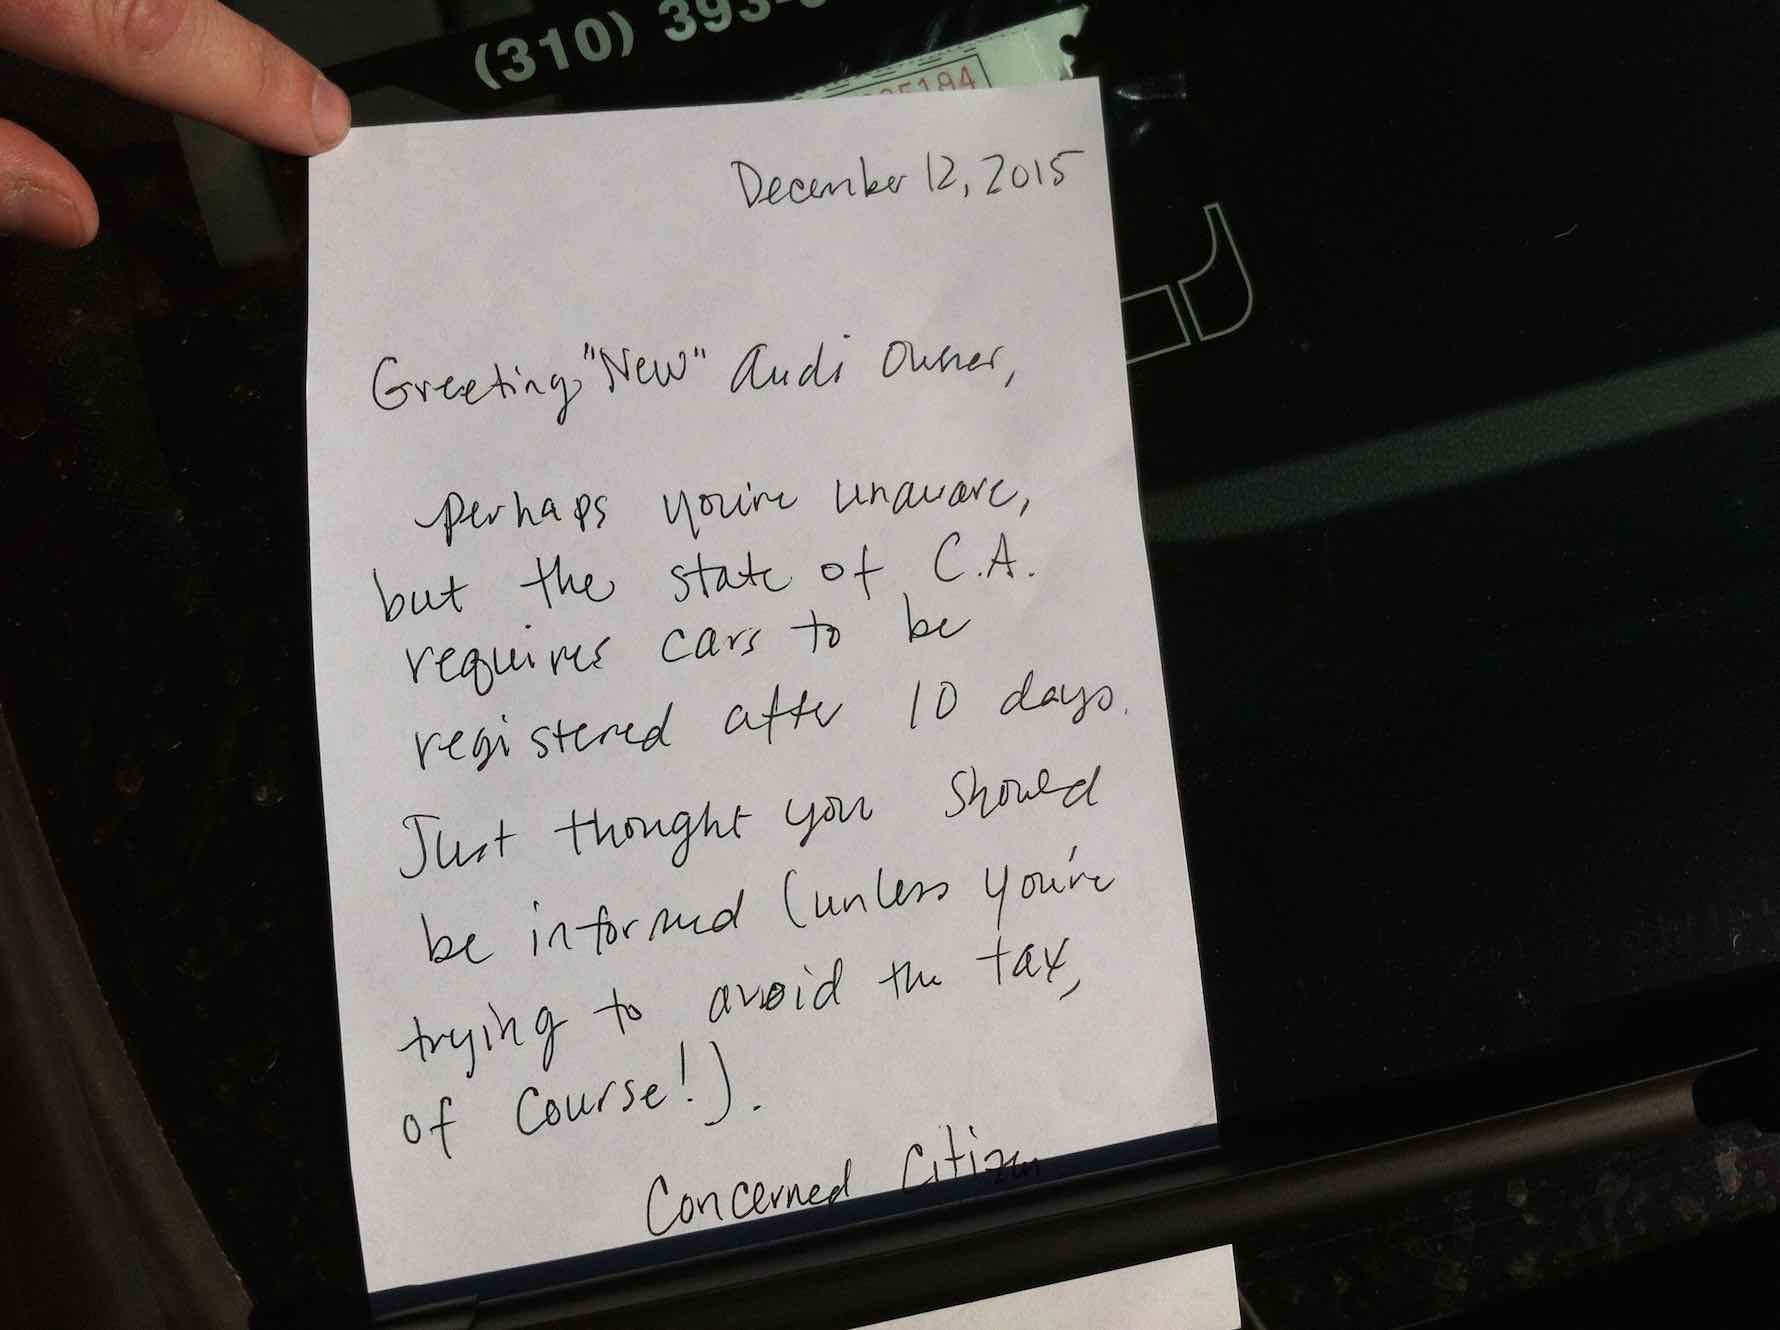 (310) 393-
5194
December 12, 2015
Greeting "New" Audi Owner,
perhaps you're unaware,
but the state of C.A.
requires cars to be
registered after 10 days.
Just thought you should
be informed (unless you're
trying to avoid the tax,
of course!).
Concerned Citizen